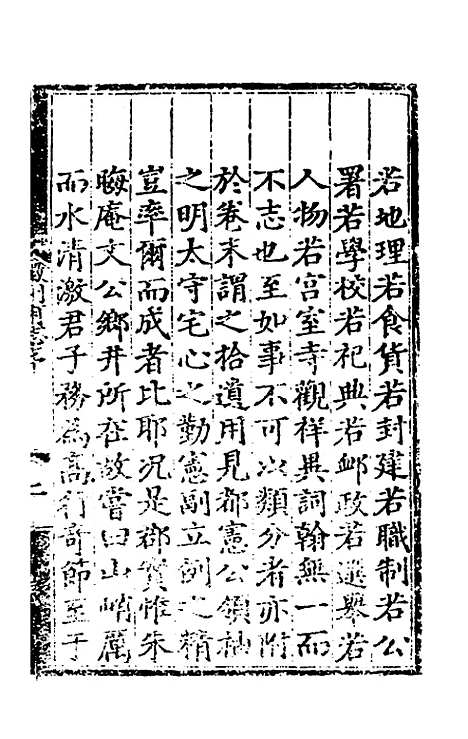 若地理若食貨若封建若職制若公
署若學校若祀典若郵政若選舉若
人物若宮室寺觀祥異詞翰無一而
不志也至如事不可以類分者亦附
於卷末謂之拾遺用見都憲公領袖
之明太守宅心之勤憲副立例之精
豈率爾而成者比耶況是郡實惟朱
晦庵文公鄉井所在故嘗曰山峭厲
而水清激君子務為高行奇節至于